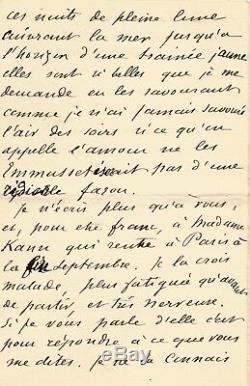 ces nuits de pleine lune
cuivrant la mer jusqu'à
l'horizon d'une trainée jaune
elles sont si belles que je me
demande en les savourant
comme je n'ai jamais savouré
l'air des soirs si ce qu'on
appelle l'amour ne les
pas d'une
façon.
je n'écris plus qu'à vous,
et, pour être franc, à Madame
Kann qui rentre à Paris à
la fin Septembre. je la crois
malade, plus fatiguée qu'avant
de partir, et très nerveuse.
Si je vous parle d'elle c'est
pour répondre à ce que vous
me dites. je la connais